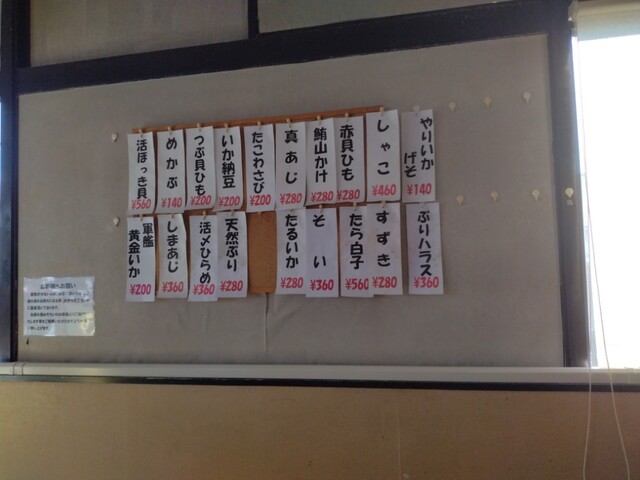 やりいか
げそ
¥140
しゃこ
¥460
赤貝ひも
¥280
鮪山かけ
¥280
真あじ
¥280
たこわさび
¥200
いか納豆
¥200
つぶ貝ひも
¥200
めかぶ
¥140
活ほっき貝
¥560
ぶりハラス
¥360
すずき
¥280
たら白子
¥560
そい
¥360
たるいか
¥280
天然ぶり
¥280
活〆ひらめ
¥360
しまあじ
¥360
軍艦
黄金いか
¥200